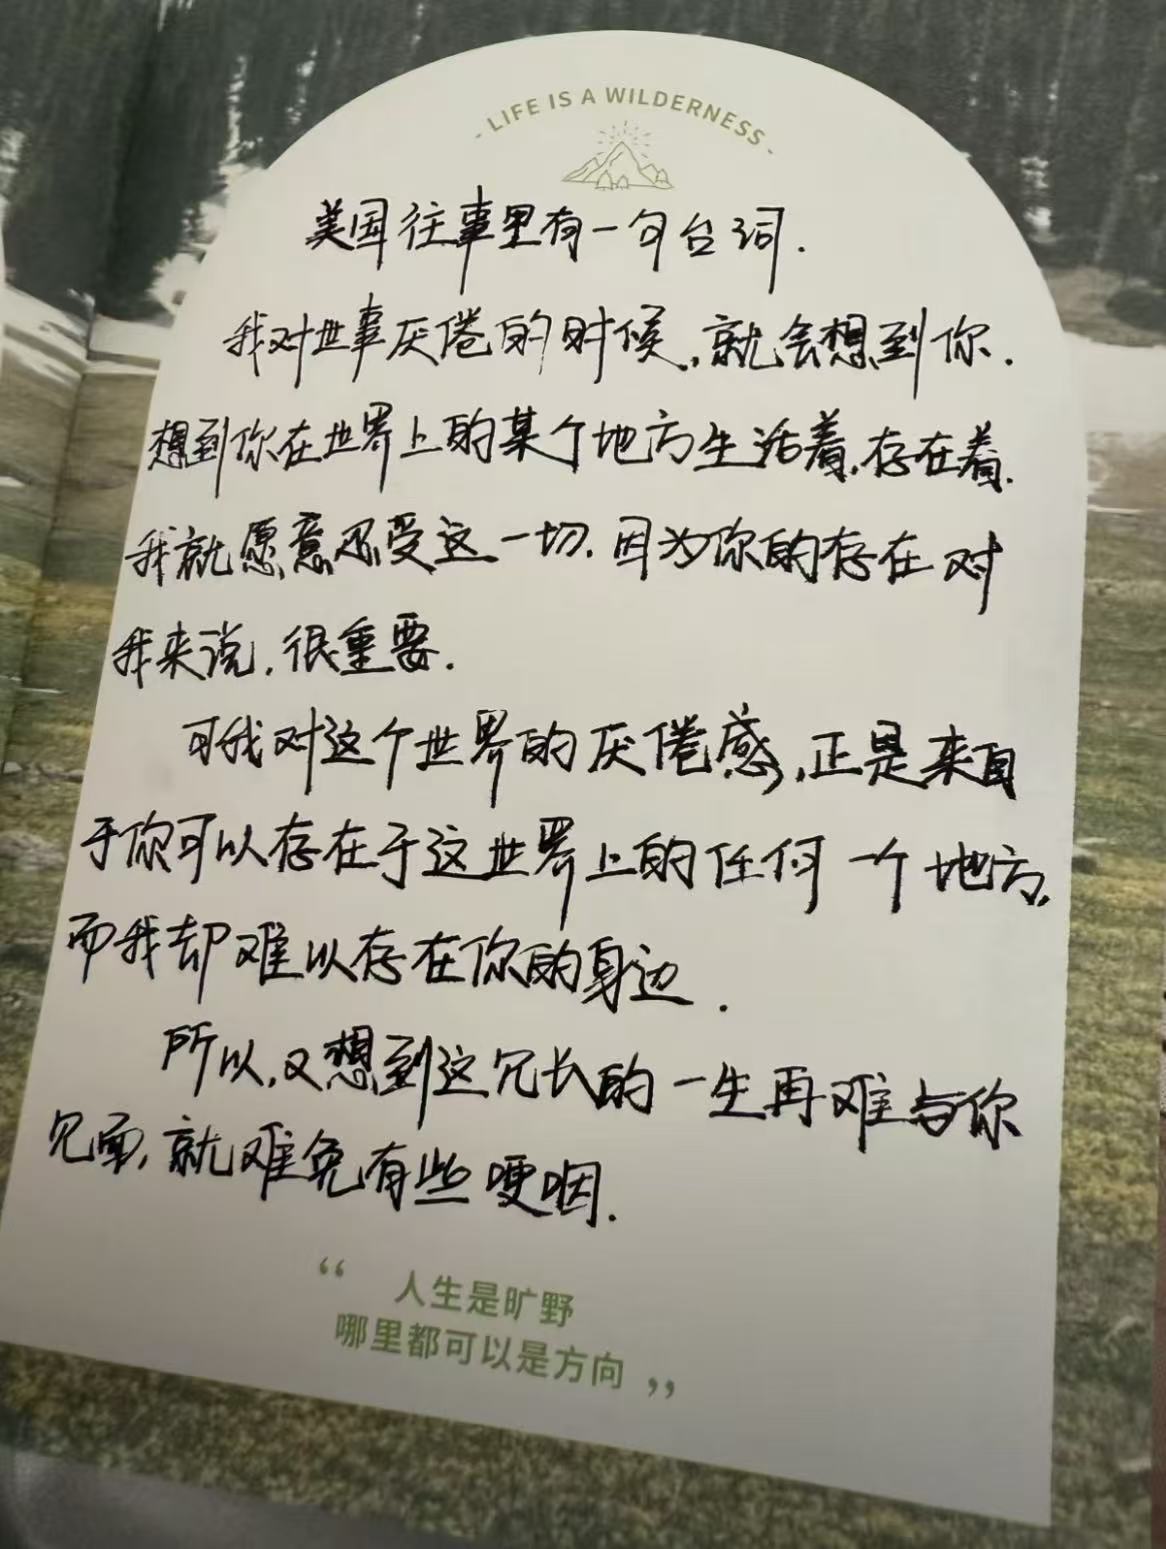 - LIFE IS A WILDERNESS -
美国往事里有一句台词.
我对世事厌倦的时候,就会想到你.
想到你在世界上的某个地方生活着,存在着.
我就愿意忍受这一切.因为你的存在对
我来说,很重要.
可我对这个世界的厌倦感,正是来自
于你可以存在于这世界上的任何一个地方,
而我却难以存在你的身边.
所以,又想到这冗长的一生再难与你
见面,就难免有些哽咽.
“ 人生是旷野
哪里都可以是方向 ”